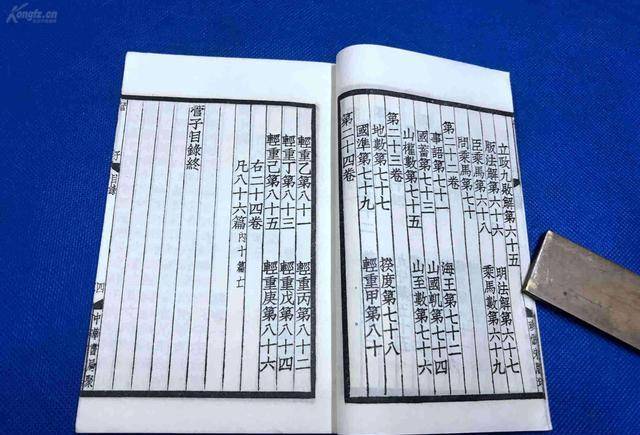 立政九敗解第六十五
版法解第六十六　明法解第六十七
臣乘馬第六十八　乘馬數第六十九
問乘馬第七十
第二十二卷
事語第七十一　海王第七十二
國蓄第七十三　山國軌第七十四
山權數第七十五　山至數第七十六
第二十三卷
地數第七十七　揆度第七十八
國準第七十九　輕重甲第八十
第二十四卷
輕重乙第八十一　輕重丙第八十二
輕重丁第八十三　輕重戊第八十四
輕重己第八十五　輕重庚第八十六
右二十四卷
凡八十六篇內十篇亡
管子目錄終
管子　目錄　四　中華書局聚
Kongfz.cn